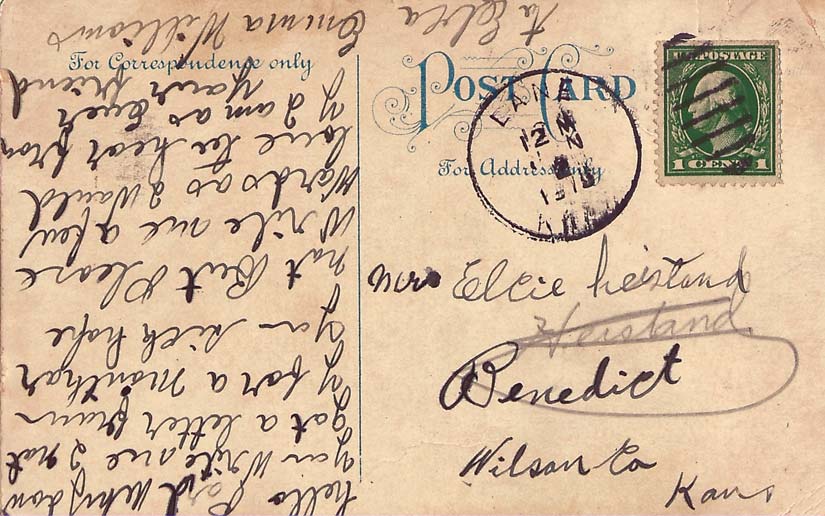 hello Pard Why don
you Write me I not
got a letter from
y for a month ar
you sick hope
not But Please
Write me a few
Words as I would
love to hear from
y I am as Ever
your friend
Emma Williams
to Elcie
For Correspondence only
POST CARD
For Address only
LANE
12 M
U.S. POSTAGE
1 CENT 1
Mrs Elcie heistand
Heistand
Benedict
Wilson Co
Kans